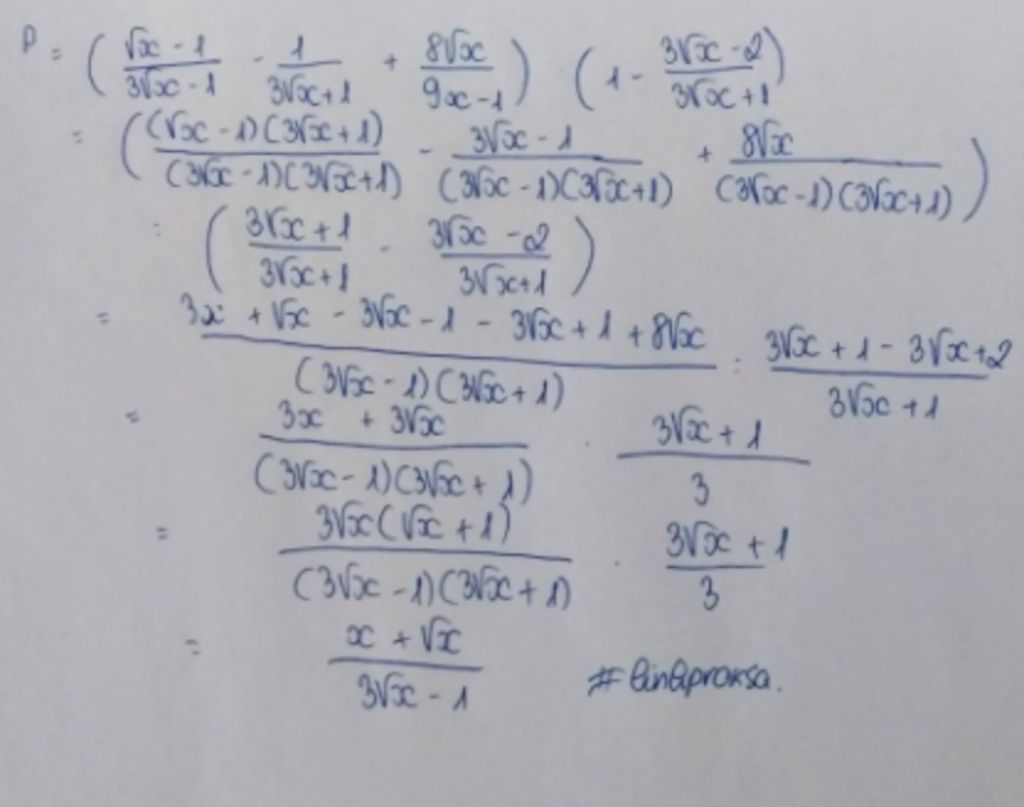 P = ( (√x - 1)/(3√x - 1) - 1/(3√x + 1) + 8√x/(9x - 1) ) ( 1 - (3√x - 2)/(3√x + 1) )
= ( (√x - 1)(3√x + 1)/(3√x - 1)(3√x + 1) - (3√x - 1)/(3√x - 1)(3√x + 1) + 8√x/(3√x - 1)(3√x + 1) )
: ( (3√x + 1)/(3√x + 1) - (3√x - 2)/(3√x + 1) )
= (3x + √x - 3√x - 1 - 3√x + 1 + 8√x)/(3√x - 1)(3√x + 1) : (3√x + 1 - 3√x + 2)/(3√x + 1)
= (3x + 3√x)/(3√x - 1)(3√x + 1) · (3√x + 1)/3
= 3√x(√x + 1)/(3√x - 1)(3√x + 1) · (3√x + 1)/3
= (x + √x)/(3√x - 1)